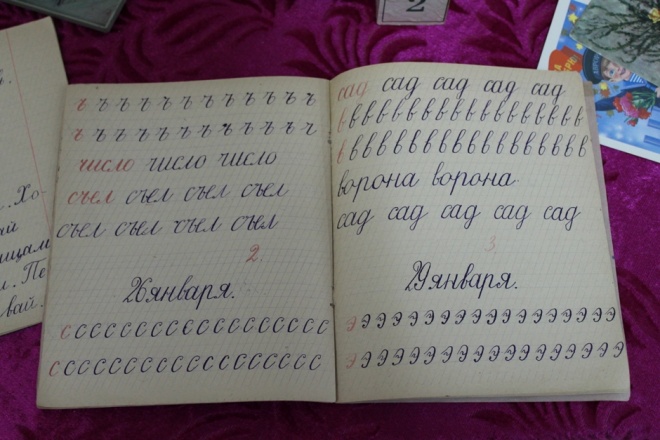 2
Хо-
ай
ицам
и. Пе
вай.
ъ ъ ъ ъ ъ ъ ъ ъ ъ ъ ъ ъ
ъ ъ ъ ъ ъ ъ ъ ъ ъ ъ ъ ъ
число число число
съел съел съел съел
съел съел съел съел
2.
26 января.
с с с с с с с с с с с с с с с с с с
с с с с с с с с с с с с с с с с с с
сад сад сад сад сад
в в в в в в в в в в в в в в в в в
в в в в в в в в в в в в в в в в в
ворона ворона
сад сад сад сад сад
3.
29 января.
э э э э э э э э э э э э э э э э э
э э э э э э э э э э э э э э э э э э